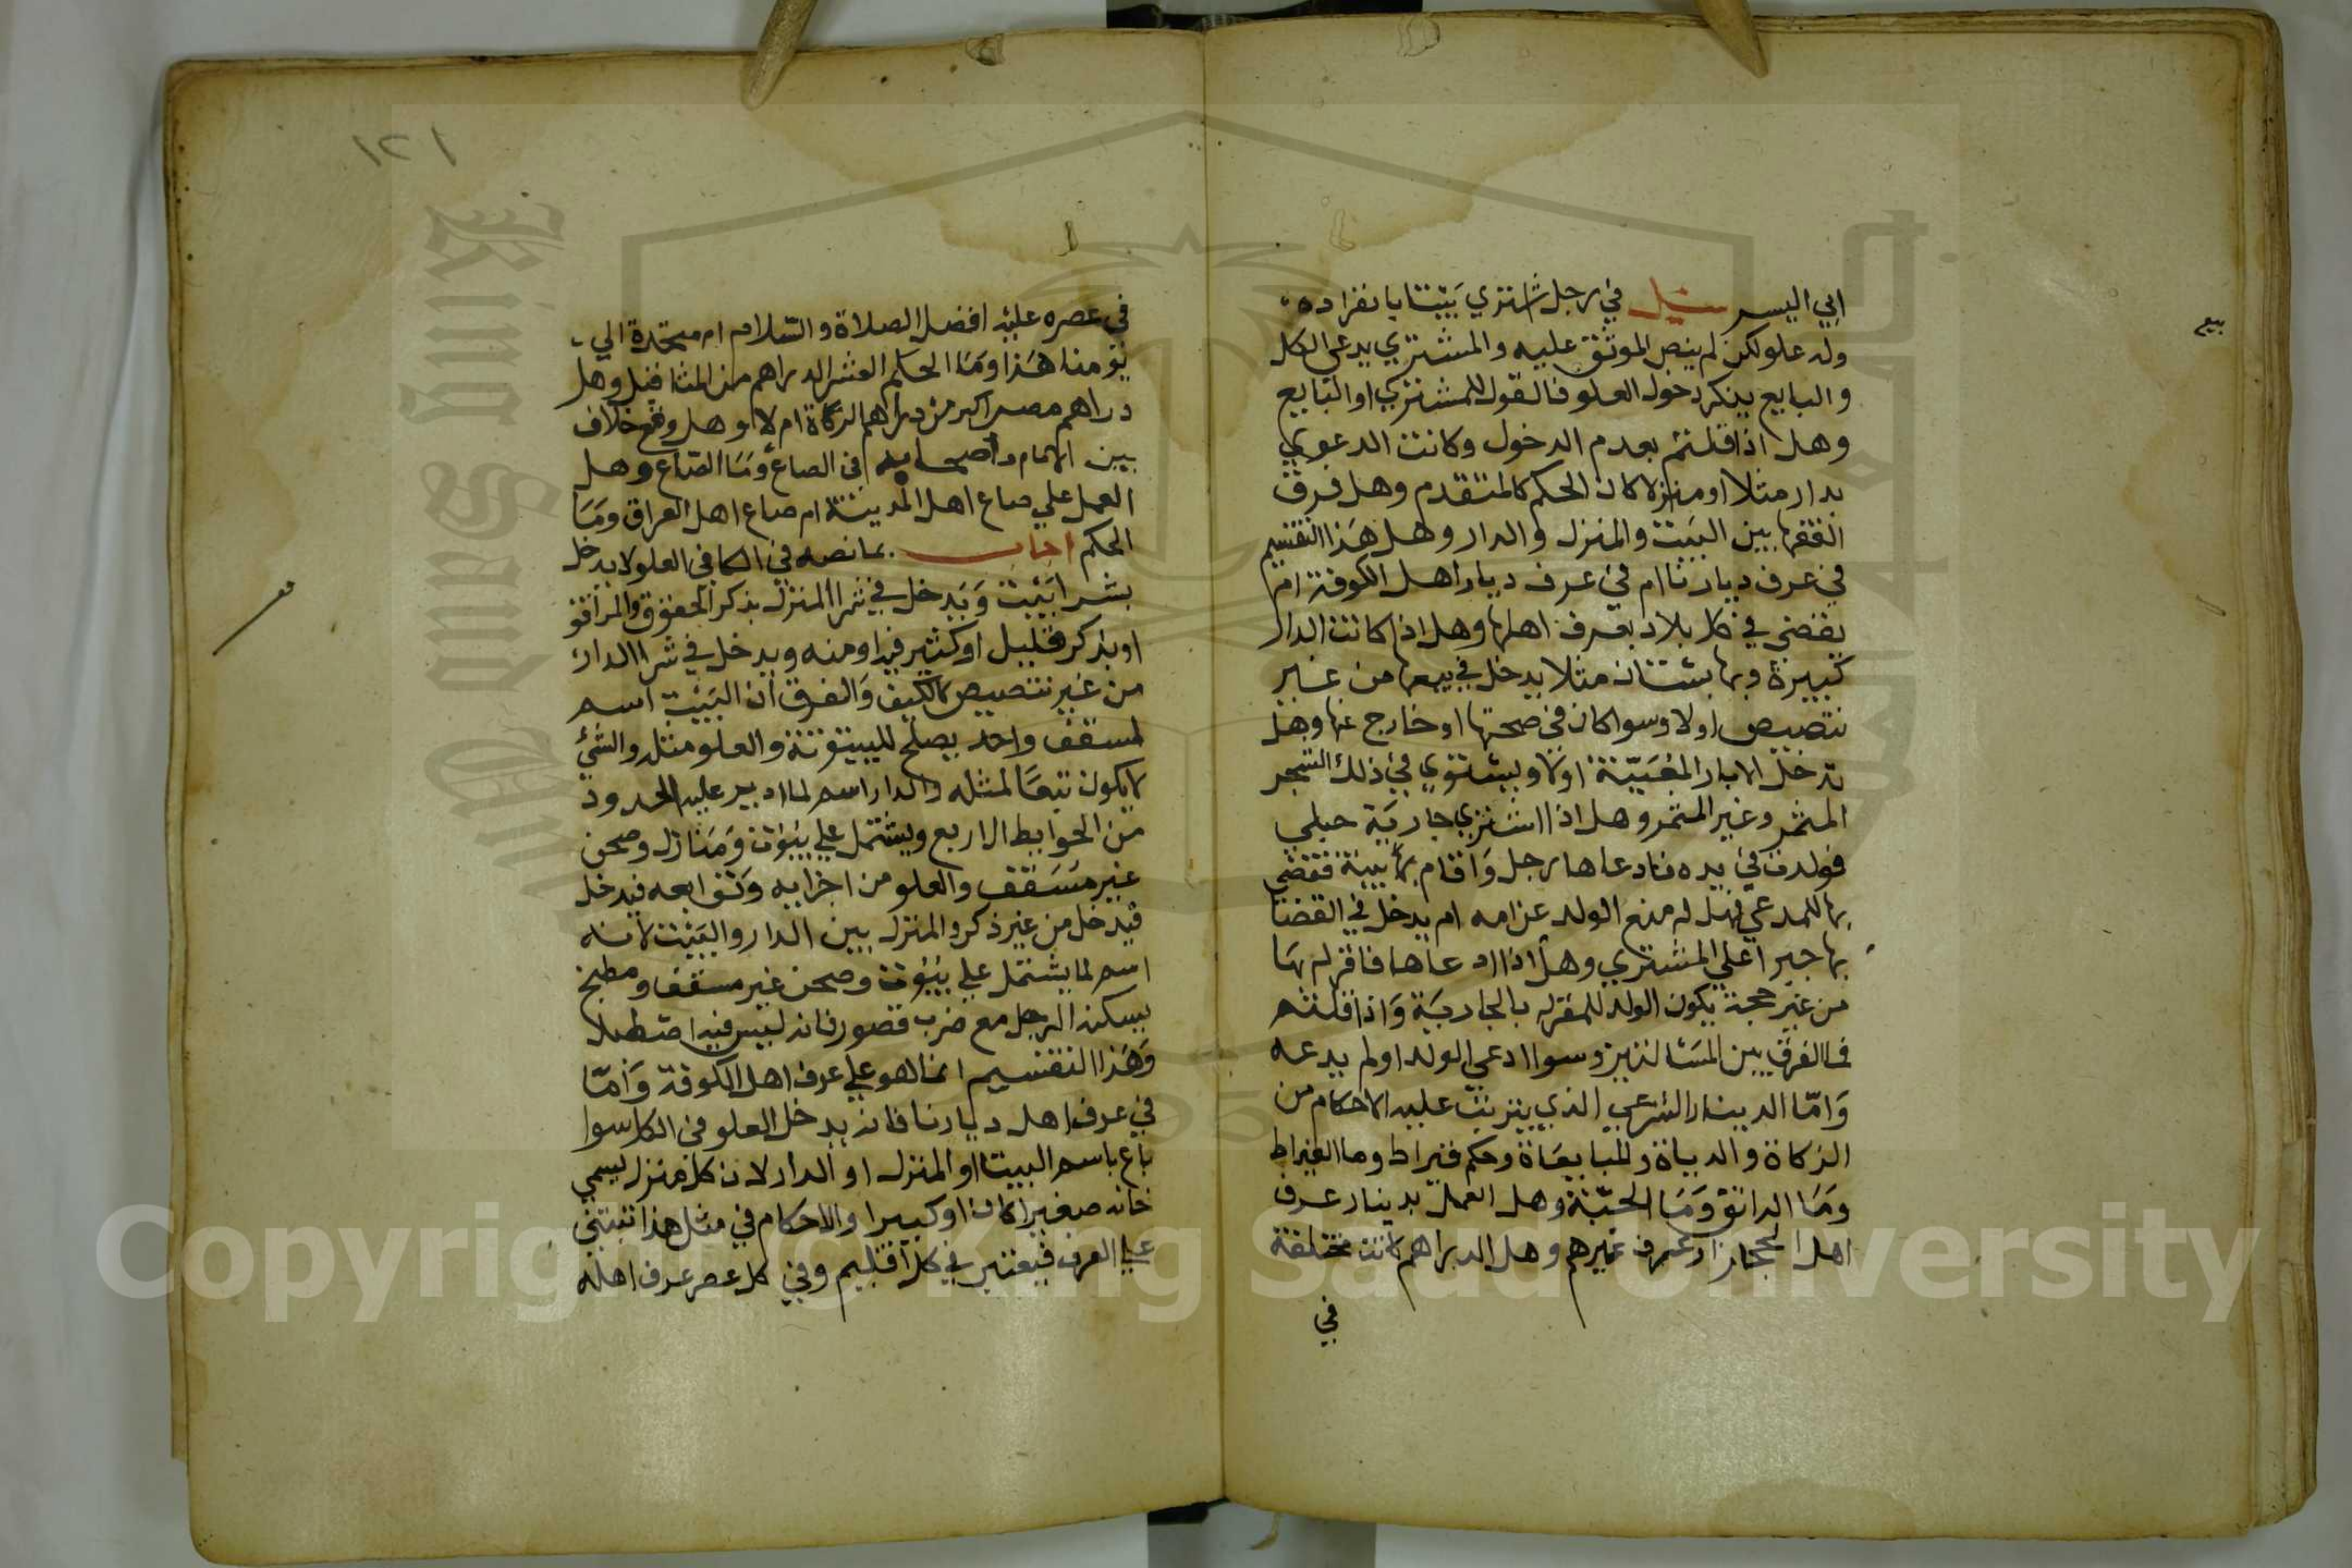 ابي اليسر سئل في رجل اشتري بيتا بانفراده
وله علو لكن لم ينص الموثق عليه والمشتري يدعي الكل
والبايع ينكر دخول العلو فالقول للمشتري او البايع
وهل اذا قلتم بعدم الدخول وكانت الدعوي
بدار مثلا او منزلا كان الحكم كالمتقدم وهل فرق
الفقها بين البيت والمنزل والدار وهل هذا التقسيم
في عرف ديارنا ام في عرف ديار اهل الكوفة ام
يقضي في كل بلاد بعرف اهلها وهل اذا كانت الدار
كبيرة وبها بستان مثلا يدخل في بيعها من غير
تنصيص اولا وسوا كان في صحتها او خارج عنها وهل
تدخل الابار المغيبة اولا ويستوي في ذلك الشجر
المثمر وغير المثمر وهل اذا اشتري جارية حبلي
فولدت في يده فادعاها رجل واقام بها بينة فقضي
بها للمدعي فهل له منع الولد عن امه ام يدخل في القضا
بها جبرا علي المشتري وهل اذا ادعاها فاقر له بها
من غير حجة يكون الولد للمقر له بالجارية واذا قلتم
فما الفرق بين المسالتين وسوا ادعي الولد او لم يدعه
واما الدينار الشرعي الذي يترتب عليه الاحكام من
الزكاة والدياة والمبايعاة وحكم قيراط وما القيراط
وما الدانق وما الحبة وهل العمل بدينار عرف
اهل الحجاز او عرف غيرهم وهل الدراهم كانت مختلفة
في
بيع
١٢١
في عصره عليه افضل الصلاة والسلام ام متحدة الي
يومنا هذا وما الحكم العشر الدراهم من المثاقيل وهل
دراهم مصر اكبر من دراهم الزكاة ام لا وهل وقع خلاف
بين الامام واصحابه في الصاع وما الصاع وهل
العمل علي صاع اهل المدينة ام صاع اهل العراق وما
الحكم اجاب بما نصه في الكافي العلو لا يدخل
بشرا بيت ويدخل في شرا المنزل بذكر الحقوق والمرافق
او بذكر قليل او كثير فيه او منه ويدخل في شرا الدار
من غير تنصيص كالكنيف والفرق ان البيت اسم
لمسقف واحد يصلح للبيتوتة والعلو مثله والشيء
لا يكون تبعا لمثله والدار اسم لما ادير عليه الحدود
من الحوايط الاربع ويشتمل علي بيوت ومنازل وصحن
غير مسقف والعلو من اجزايه وتوابعه فيدخل
فيدخل من غير ذكر والمنزل بين الدار والبيت لانه
اسم لما يشتمل علي بيوت وصحن غير مسقف ومطبخ
يسكنه الرجل مع ضرب قصور فانه ليس فيه اصطبلا
وهذا التقسيم انما هو علي عرف اهل الكوفة واما
في عرف اهل ديارنا فانه يدخل العلو في الكل سوا
باع باسم البيت او المنزل او الدار لان كل منزل يسمي
خانه صغيرا كان او كبيرا والاحكام في مثل هذا تبتني
علي العرف فيعتبر في كل اقليم وفي كل عصر عرف اهله
Copyright © King Saud University